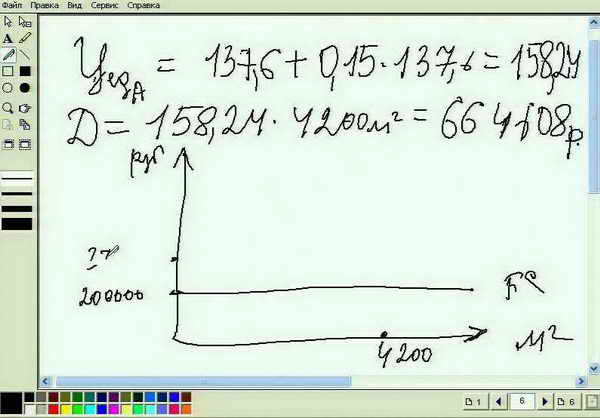 Файл Правка Вид Сервис Справка
Цед A = 137,6 + 0,15 · 137,6 = 158,24
Д = 158,24 · 4200м² = 664608р.
руб
??
200000
FC
4200
м²
1 6 6